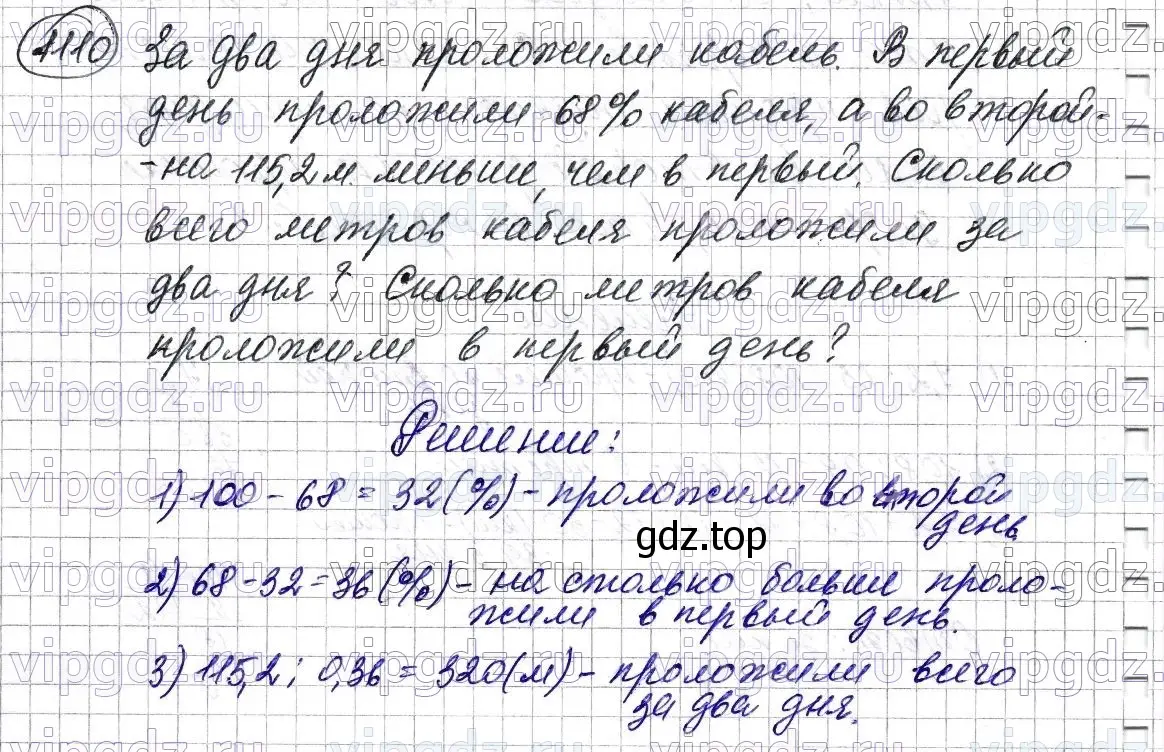 1110 За два дня проложили кабель. В первый
день проложили 68% кабеля, а во второй-
-на 115,2 м. меньше, чем в первый. Сколько
всего метров кабеля проложили за
два дня? Сколько метров кабеля
проложили в первый день?
Решение:
1) 100 - 68 = 32 (%) - проложили во второй
день.
gdz.top
2) 68 - 32 = 36 (%) - на столько больше проло-
жили в первый день.
3) 115,2 : 0,36 = 320 (м) - проложили всего
за два дня.
vipgdz.ru